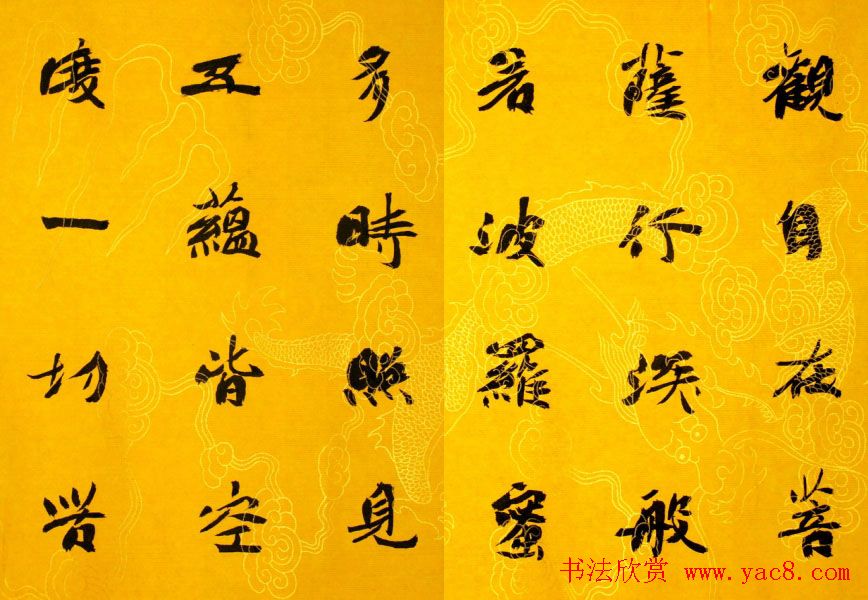 觀自在菩
薩行深般
若波羅蜜
多時照見
五蘊皆空
度一切苦
书法欣赏 www.yac8.com